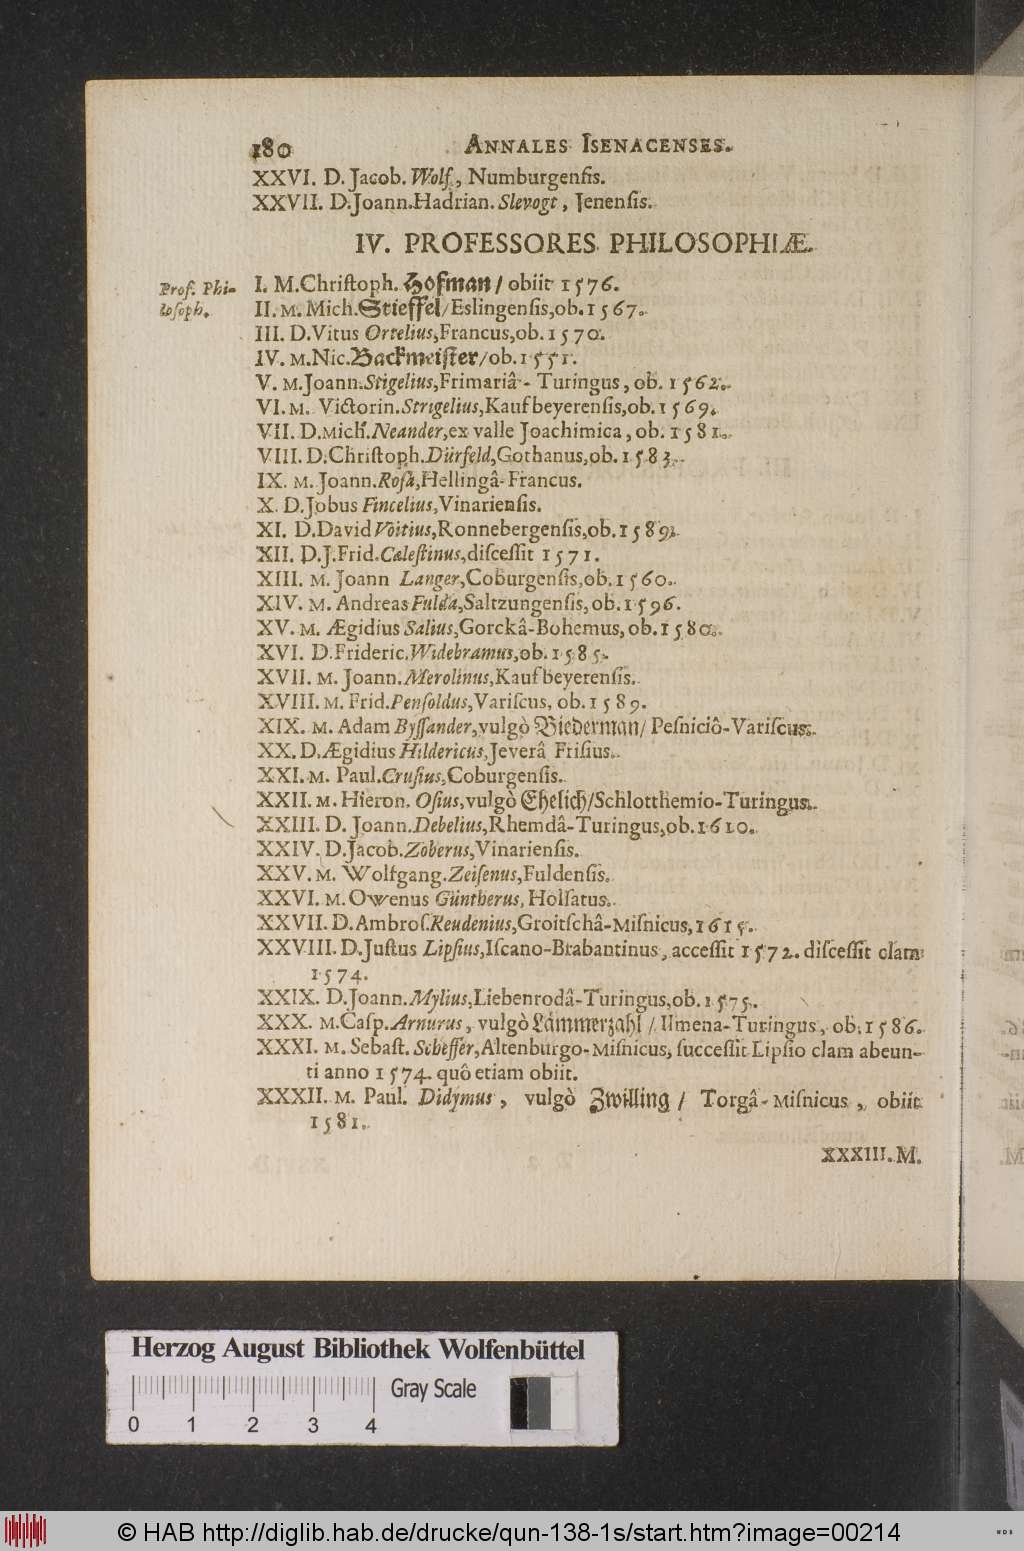 180 ANNALES ISENACENSES.
XXVI. D. Jacob. Wolf., Numburgenſis.
XXVII. D.Joann.Hadrian. Slevogt, Jenenſis.
IV. PROFESSORES PHILOSOPHIÆ.
Prof. Phi-
loſoph.
I. M.Chriſtoph. Hofman / obiit 1576.
II. M. Mich.Stieffel/Eslingenſis,ob.1567.
III. D.Vitus Ortelius,Francus,ob.1570.
IV. M.Nic.Backmeiſter/ob.1551.
V. M.Joann.Stigelius,Frimariâ-Turingus, ob. 1562.
VI. M. Victorin.Strigelius,Kaufbeyerenſis,ob.1569.
VII. D.Mich.Neander,ex valle Joachimica, ob. 1581.
VIII. D.Chriſtoph.Dürfeld,Gothanus,ob.1583.
IX. M. Joann.Roſa,Hellingâ-Francus.
X. D.Jobus Fincelius,Vinarienſis.
XI. D.David Voitius,Ronnebergenſis,ob.1589.
XII. D.J.Frid.Cæleſtinus,diſceſſit 1571.
XIII. M. Joann Langer,Coburgenſis,ob.1560.
XIV. M. Andreas Fulda,Saltzungenſis,ob.1596.
XV. M. Ægidius Salius,Gorckâ-Bohemus, ob.1580.
XVI. D.Frideric.Widebramus,ob.1585.
XVII. M. Joann.Merolinus,Kaufbeyerenſis.
XVIII. M. Frid.Penſoldus,Variſcus, ob.1589.
XIX. M. Adam Byſſander,vulgò Biederman/ Peſniciô-Variſcus.
XX. D.Ægidius Hildericus,Jeverâ Friſius.
XXI. M. Paul.Cruſius,Coburgenſis.
XXII. M. Hieron. Oſius,vulgò Ehelich/Schlotthemio-Turingus.
XXIII. D. Joann.Debelius,Rhemdâ-Turingus,ob.1610.
XXIV. D.Jacob.Zoberus,Vinarienſis.
XXV. M. Wolfgang.Zeiſenus,Fuldenſis.
XXVI. M. Owenus Güntherus, Holſatus.
XXVII. D.Ambroſ.Reudenius,Groitſchâ-Miſnicus,1615.
XXVIII. D.Juſtus Lipſius,Iſcano-Brabantinus, acceſſit 1572. diſceſſit clam
1574.
XXIX. D.Joann.Mylius,Liebenrodâ-Turingus,ob.1575.
XXX. M.Caſp.Arnurus, vulgò Lämmerzahl / Ilmena-Turingus, ob.1586.
XXXI. M. Sebaſt. Scheffer,Altenburgo-Miſnicus, ſucceſſit Lipſio clam abeun-
ti anno 1574. quô etiam obiit.
XXXII. M. Paul. Didymus, vulgò Zwilling / Torgâ-Miſnicus, obiit
1581.
XXXIII. M.
Herzog August Bibliothek Wolfenbüttel
Gray Scale
0 1 2 3 4
© HAB http://diglib.hab.de/drucke/qun-138-1s/start.htm?image=00214